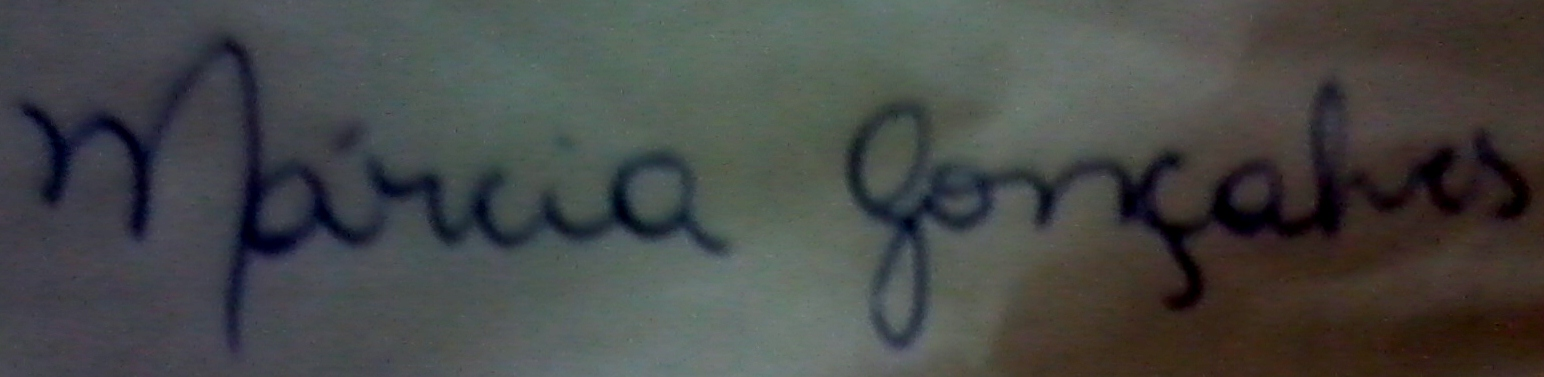 Márcia Gonçalves